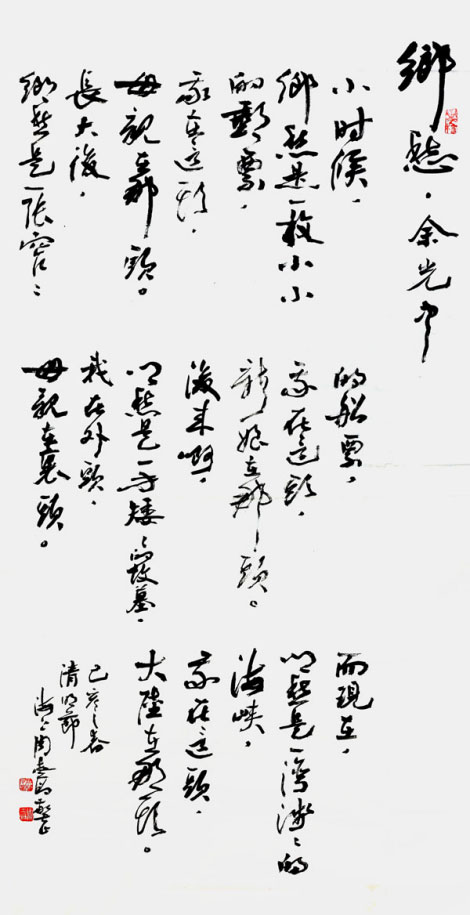 鄉愁·余光中
小时候，
鄉愁是一枚小小
的郵票，
我在這頭，
母親在那頭。
長大後，
鄉愁是一張窄〻
的船票，
我在這頭，
新娘在那頭。
後来啊，
鄉愁是一方矮〻的墳墓，
我在外頭，
母親在裏頭。
而現在，
鄉愁是一湾淺〻的
海峡，
我在這頭，
大陸在那頭。
己亥之春
清明節